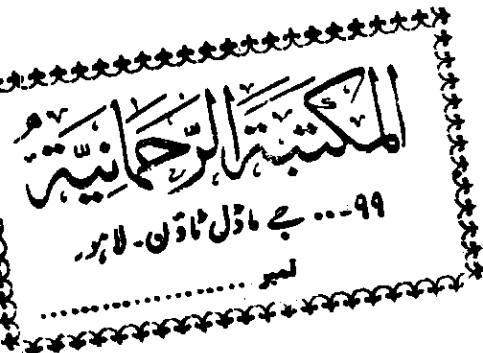 المكتبة الرحمانية
۹۹-... جے ماڈل ٹاؤن - لاہور
نمبر ......................